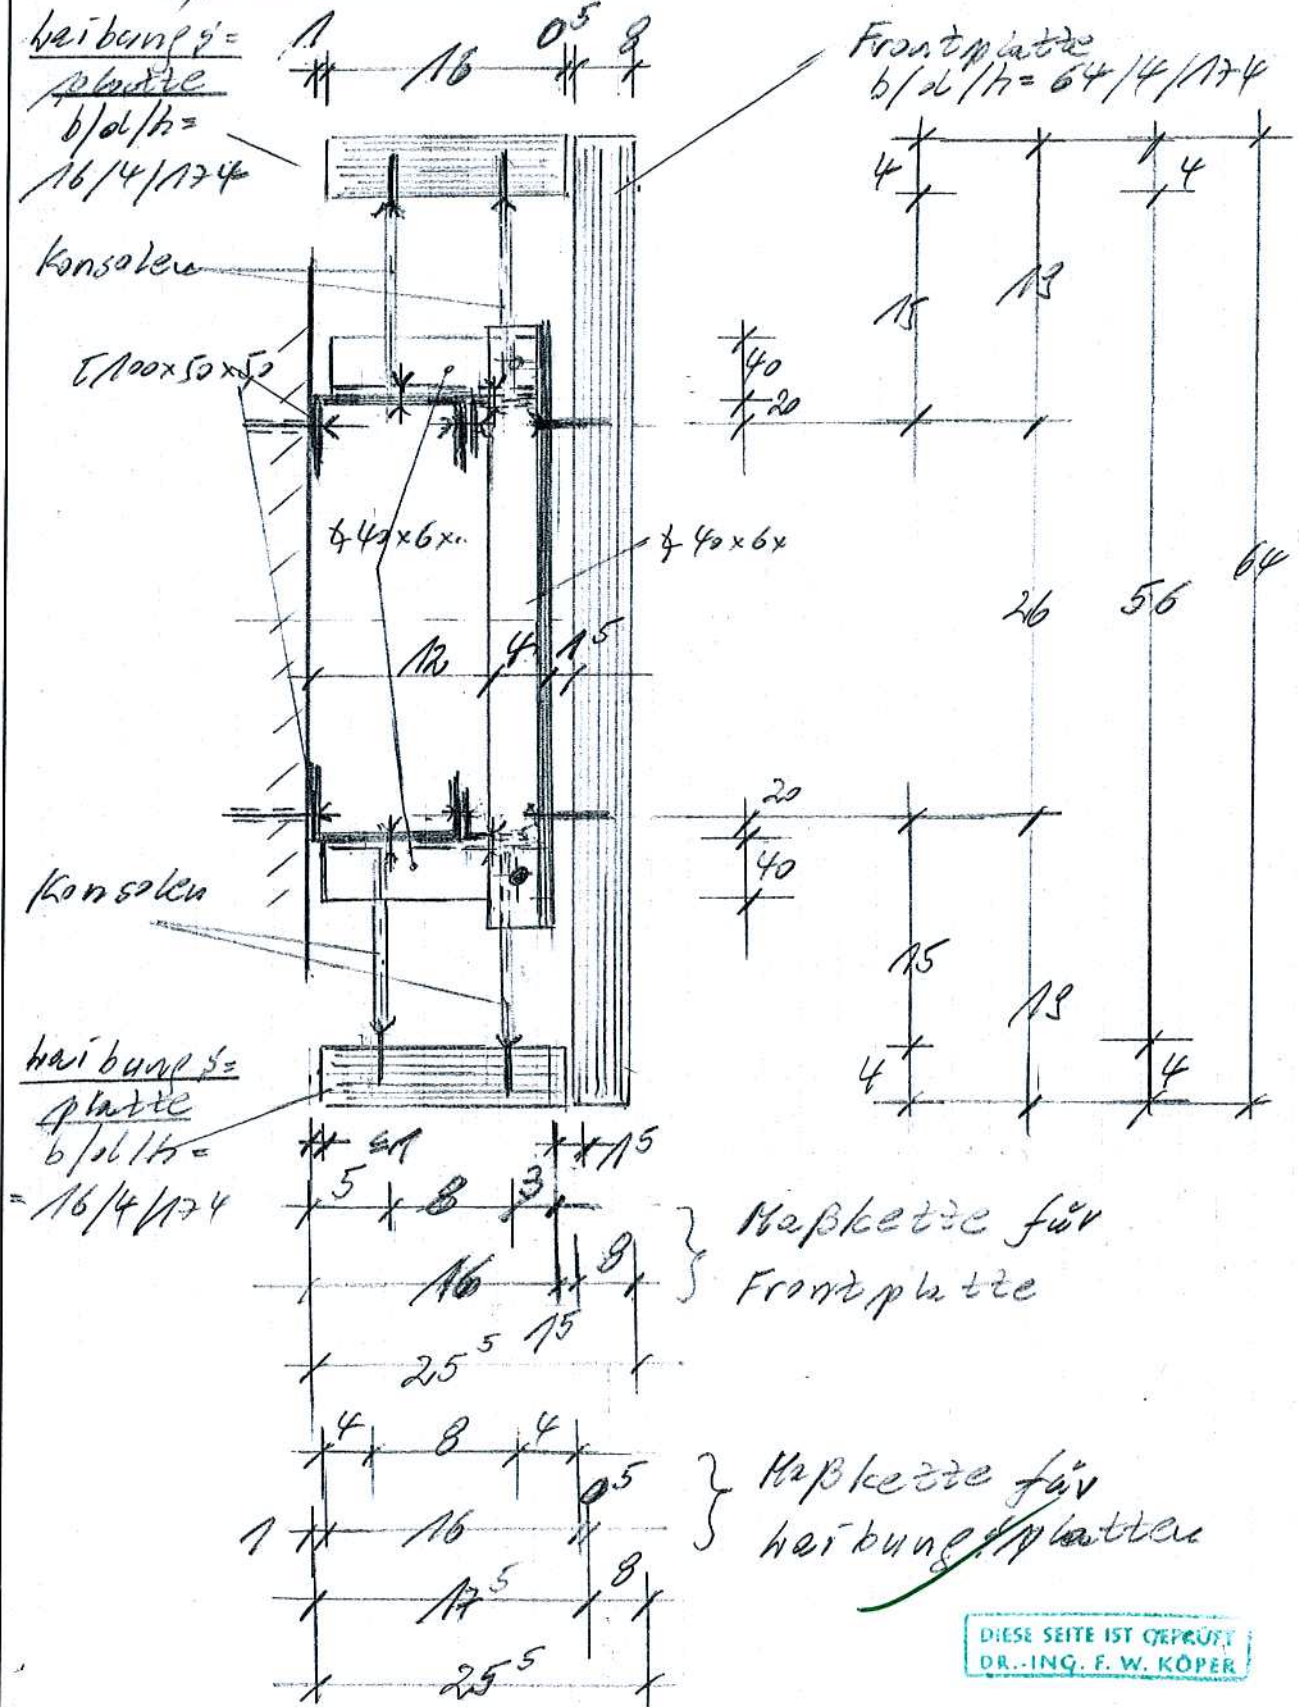 Laibungs=
platte
b/d/h=
16/4/174
1
16
0⁵
8
Frontplatte
b/d/h= 64/4/174
Konsolen
[100x50x50
∡ 40x6x..
∡ 40x6x
12
4
1⁵
4
15
19
4
40
20
26
56
64
20
40
15
19
4
4
Konsolen
Laibungs=
platte
b/d/h=
= 16/4/174
≤1
1⁵
5
8
3
16
8
1⁵
25⁵
} Maßkette für
Frontplatte
4
8
4
0⁵
1
16
17⁵
8
25⁵
} Maßkette für
Laibungsplatten
DIESE SEITE IST GEPRÜFT
DR.-ING. F. W. KÖPER